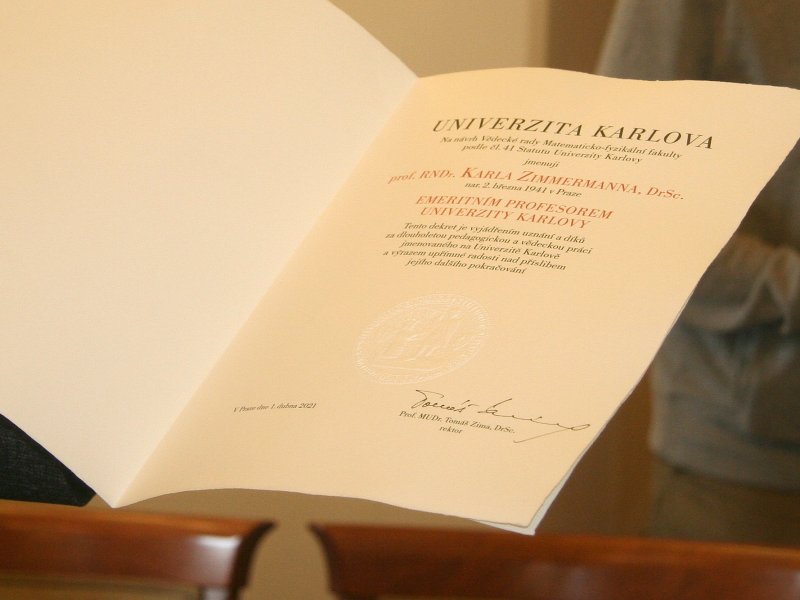 UNIVERZITA KARLOVA
Na návrh Vědecké rady Matematicko-fyzikální fakulty
podle čl. 41 Statutu Univerzity Karlovy
jmenuji
prof. RNDr. KARLA ZIMMERMANNA, DrSc.
nar. 2. března 1941 v Praze
EMERITNÍM PROFESOREM
UNIVERZITY KARLOVY
Tento dekret je vyjádřením uznání a díků
za dlouholetou pedagogickou a vědeckou práci
jmenovaného na Univerzitě Karlově
a výrazem upřímné radosti nad příslibem
jejího dalšího pokračování
V Praze dne 1. dubna 2021
Prof. MUDr. Tomáš Zima, DrSc.
rektor